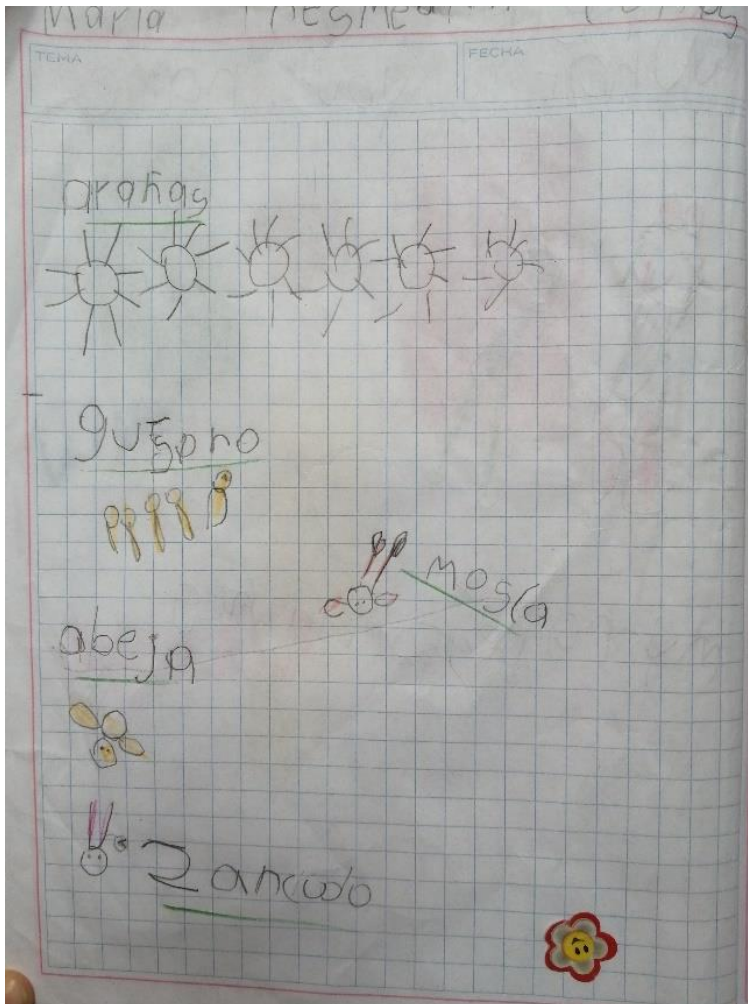 Maria
TEMA
FECHA
arañas
gusano
mosca
abeja
Zancudo